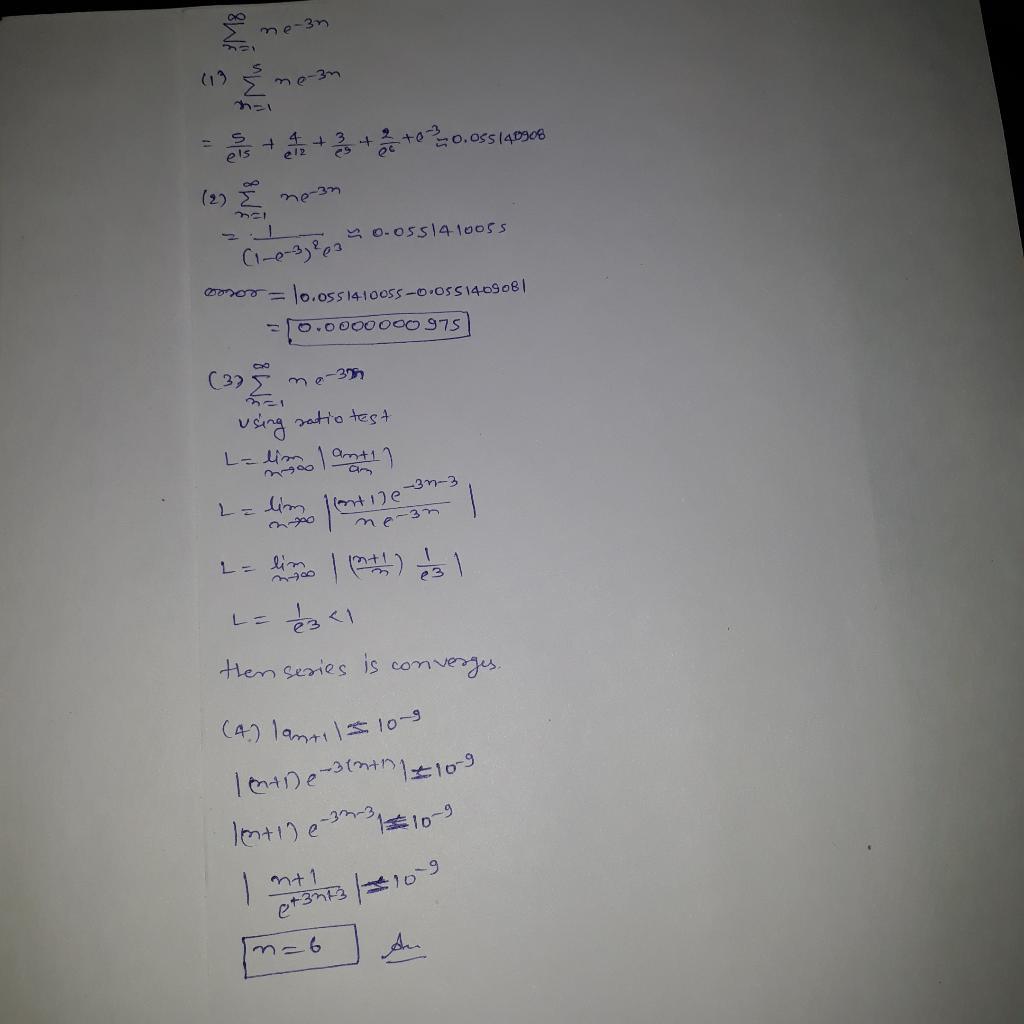 ∞
Σ ne-3n
n=1
(1) 5
Σ ne-3n
n=1
= 5/e15 + 4/e12 + 3/e9 + 2/e6 + e-3 ≈ 0.055140908
(2) ∞
Σ ne-3n
n=1
= 1/(1-e-3)2e3 ≈ 0.0551410055
error = |0.0551410055-0.055140908|
= 0.0000000975
(3) ∞
Σ ne-3n
n=1
using ratio test
L = lim n→∞ |an+1/an|
L = lim n→∞ |(n+1)e-3n-3/ne-3n|
L = lim n→∞ |(n+1/n) 1/e3|
L = 1/e3 <1
then series is converges.
(4) |an+1| ≤ 10-9
|(n+1)e-3(n+1)| ≤ 10-9
|(n+1)e-3n-3| ≤ 10-9
|n+1/e+3n+3| ≤ 10-9
n=6 An